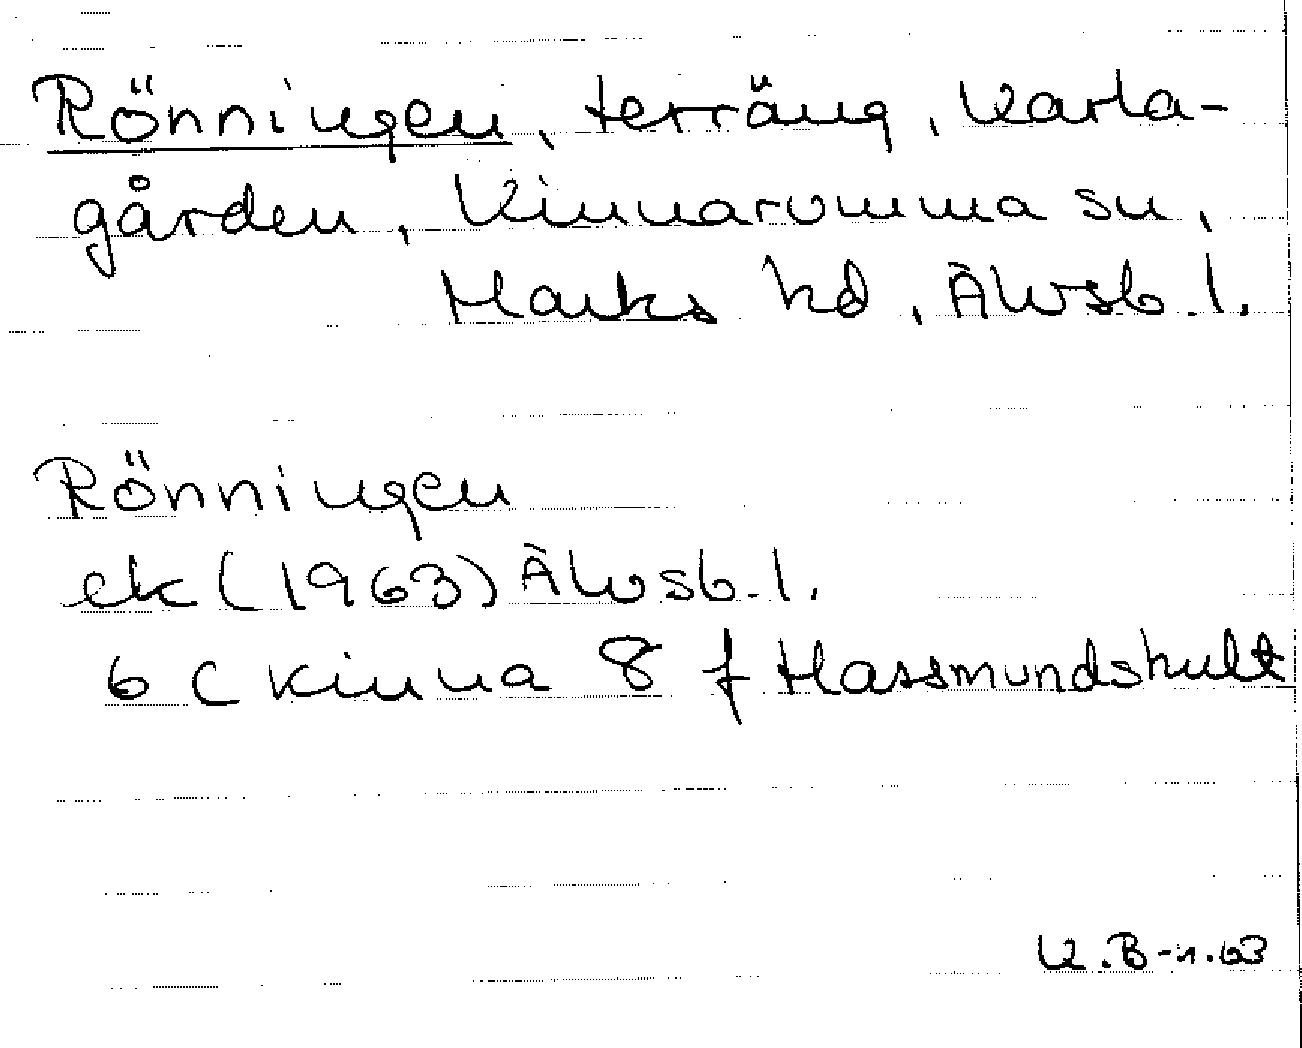 Rönningen, terräng, Karla-
gården, Kinnarumma sn,
Marks hd, Älvsb. l.
Rönningen
ek (1963) Älvsb. l.
6 C Kinna 8 f Hassmundshult
K.B-n. 63